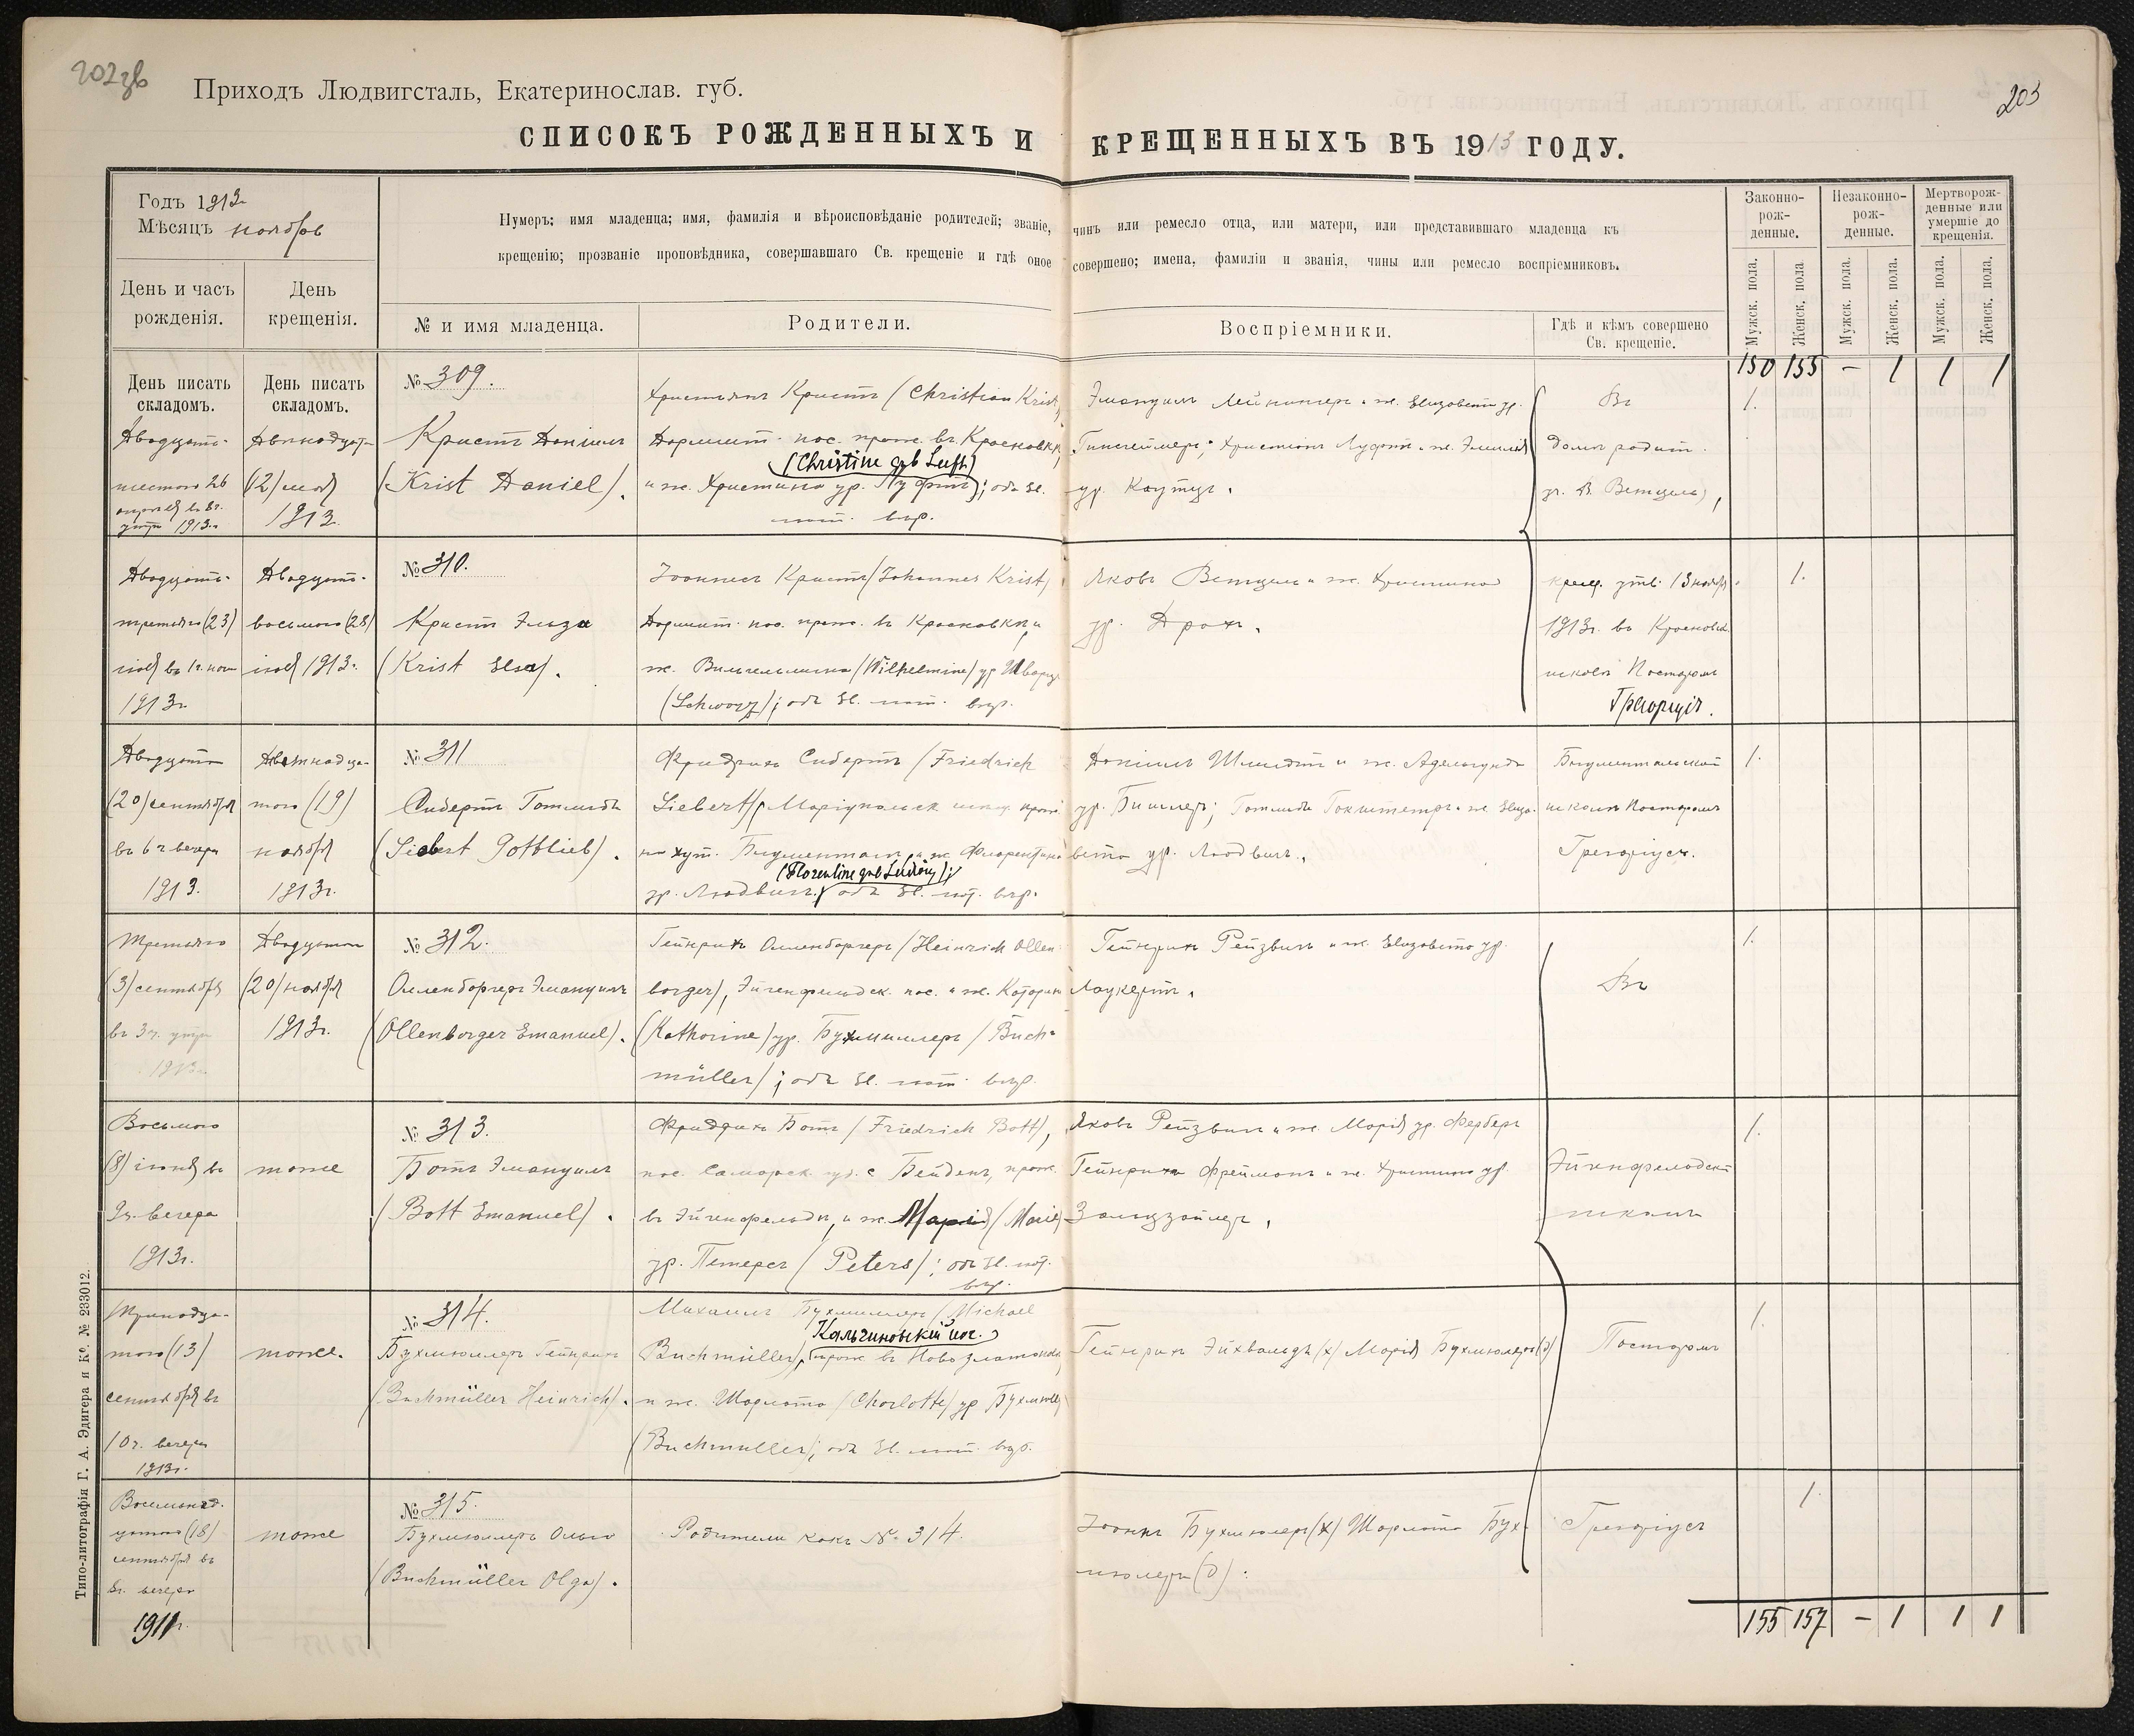 202 об
203
Приходъ Людвигсталь, Екатеринослав. губ.
СПИСОКЪ РОЖДЕННЫХЪ И КРЕЩЕННЫХЪ ВЪ 1913 ГОДУ.
Годъ 1913
Мѣсяцъ ноябрь
День и часъ рожденія.
День крещенія.
Нумеръ; имя младенца; имя, фамилія и вѣроисповѣданіе родителей; званіе, чинъ или ремесло отца, или матери, или представившаго младенца къ
крещенію; прозваніе проповѣдника, совершавшаго Св. крещеніе и гдѣ оное совершено; имена, фамиліи и званія, чины или ремесло воспріемниковъ.
№ и имя младенца.
Родители.
Воспріемники.
Гдѣ и кѣмъ совершено Св. крещеніе.
Законно-рож-денные.
Незаконно-рож-денные.
Мертворож-денные или умершіе до крещенія.
Мужск. пола.
Женск. пола
Мужск. пола.
Женск. пола.
Мужск. пола.
Женск. пола.
150 155 – 1 1 1
День писать складомъ.
День писать складомъ.
Двадцать-
шестого 26
въ 8ч.
утра 1913г.
(12)
1913.
№ 309.
Кристъ Даніилъ
(Krist Daniel).
Христіанъ Кристъ (Christian Krist)
Дармшт. пос. прож. въ Красновкѣ
(Christine geb Luft)
и ж. Христина ур. Луфтъ; оба Ев.
лют. вѣр.
Эмануилъ и ж. Елизавета ур.
Христіанъ Луфтъ и ж. Эмилія
ур. Каутцъ.
Въ
домѣ родит.
1.
Двадцать-
третьяго (23)
1913г.
Двадцать-
восьмого (28)
1913г.
№ 310.
Кристъ Эльза
(Krist Elsa).
Іоаннесъ Кристъ (Johannes Krist)
Дармшт. пос. прож. въ Красновкѣ и
ж. Вильгельмина (Wilhelmine) ур Шварцъ
(Schwarz); оба Ев. лют. вѣр.
Яковъ Ветцель и ж. Христина
ур.
крещ. утв. 13 ноября
1913г. въ Красновск.
школѣ Пасторомъ
Грегоріусъ.
1.
Двадцатаго
(20) сентября
въ 6 ч вечера
1913.
Девятнадца-
таго (19)
ноября
1913г.
№ 311
Сибертъ Готлибъ
(Siebert Gottlieb).
Фридрихъ Сибертъ (Friedrich
Siebert) Маріупольск
на хут. Блументаль, и ж. Флорентина
(Florentine geb Ludwig);
ур. Людвигъ, оба Ев. лют. вѣр.
Даніилъ Шмидтъ и ж. Адельгунда
ур. Готлибъ и ж. Елиза-
вета ур. Людвигъ.
Блументальской
школѣ Пасторомъ
Грегоріусъ.
1.
Третьяго
(3) сентября
въ 3ч. утра
1913г.
Двадцатаго
(20) ноября
1913г.
№ 312.
Олленборгеръ Эмануилъ
(Ollenborger Emanuel).
Гейнрихъ Олленборгеръ (Heinrich Ollen-
borger), Эйгенфельдск. пос. и ж. Катарина
(Katharine) ур. Бухмиллеръ (Buch-
müller); оба Ев. лют. вѣр.
Гейнрихъ Рейзвихъ и ж. Елизавета ур.
Лаукертъ.
Въ
1.
Восьмого
(8) въ
9ч. вечера
1913г.
тоже
№ 313.
Ботъ Эмануилъ
(Bott Emanuel).
Фридрихъ Ботъ (Friedrich Bott),
прож.
въ Эйгенфельдѣ, и ж. Марія (Marie)
ур. Петерсъ (Peters); оба Ев. лют.
вѣр.
Яковъ Рейзвихъ и ж. Марія ур. Ферберъ
Гейнрихъ Фрейманъ и ж. Христина ур.
Зальцзайлеръ.
Эйгенфельдск
школѣ
1.
Тринадца-
таго (13)
сентября въ
10ч. вечера
1913г.
тоже.
№ 314.
Бухмюллеръ Гейнрихъ
(Buchmüller Heinrich).
Михаилъ Бухмиллеръ (Michael
Кальчиновскій пос.
Buchmüller), прож въ Новозлатополь,
и ж. Шарлотта (Charlotte) ур Бухмюллеръ
(Buchmüller); оба Ев. лют. вѣр.
Гейнрихъ Эйхвальдъ (х) Марія Бухмюллеръ (д)
Пасторомъ
1.
Восемнад-
цатаго (18)
сентября въ
8ч. вечера
1911г.
тоже
№ 315.
Бухмюллеръ Ольга
(Buchmüller Olga).
Родители какъ № 314.
Іоаннъ Бухмюллеръ (х) Шарлотта Бух-
мюллеръ (д).
Грегоріусъ
1.
155 157 – 1 1 1
Типо-литографія Г. А. Эдигера и Ко. № 233012.